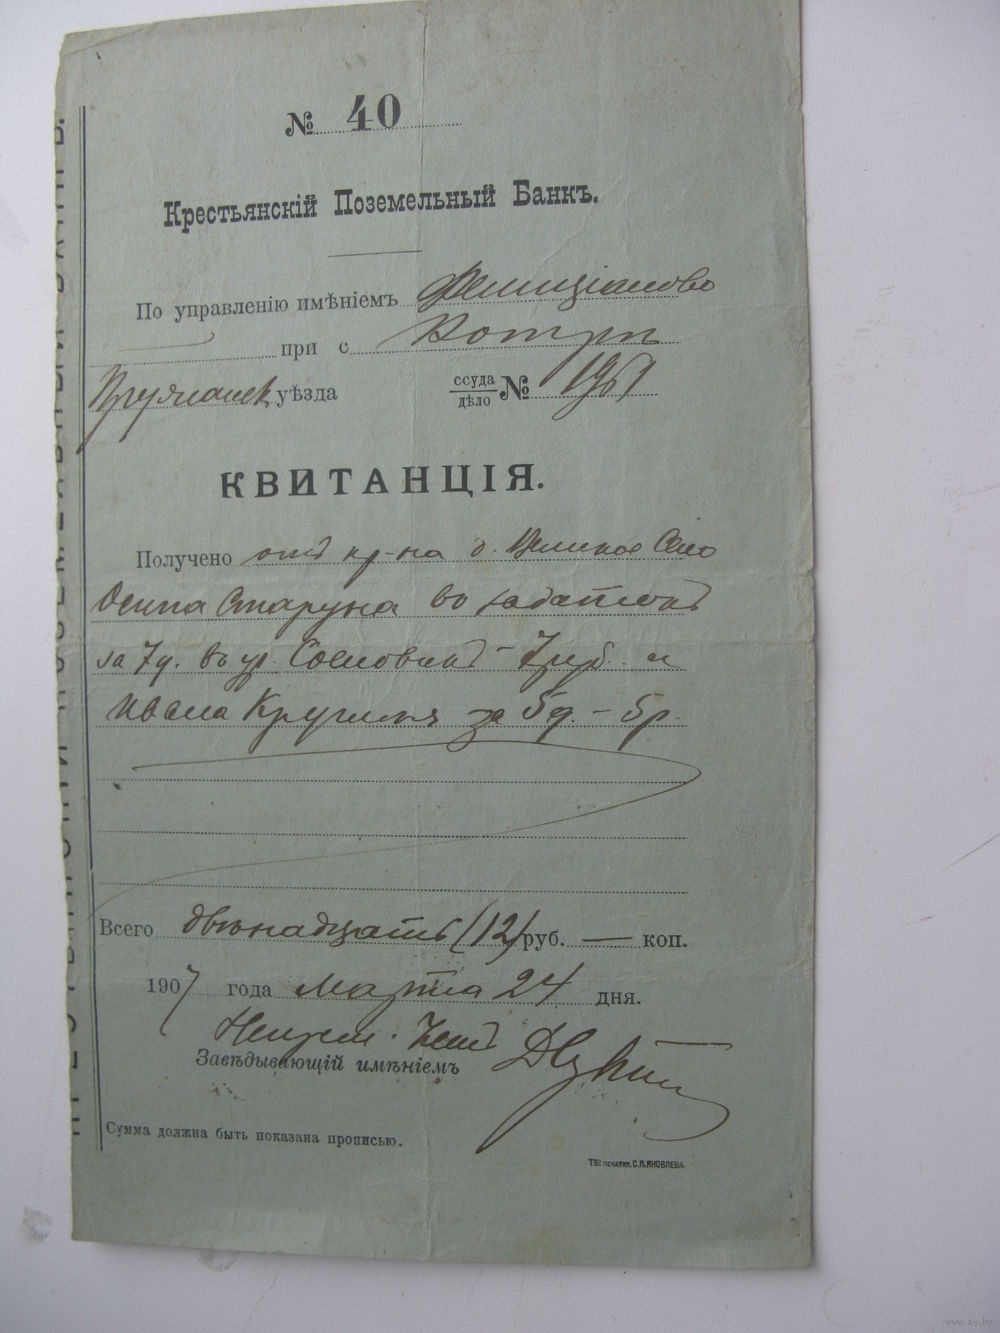 № 40
Крестьянскій Поземельный Банкъ.
По управленію имѣніемъ Фелиціаново
при с. Котры
Пружанск уѣзда ссуда дѣло № 1961
КВИТАНЦІЯ.
Получено отъ кр-на д. Великое Село
Осипа Старуна въ задатокъ
за 7 д. въ ур. Сосновикъ - 7 руб. и
Ивана Кругленя за 5 д. - 5 р.
Всего двѣнадцать (12) руб. — коп.
1907 года Марта 24 дня.
Завѣдывающій имѣніемъ
Сумма должна быть показана прописью.
Тво печатн. С.П. Яковлева
www.ay.by